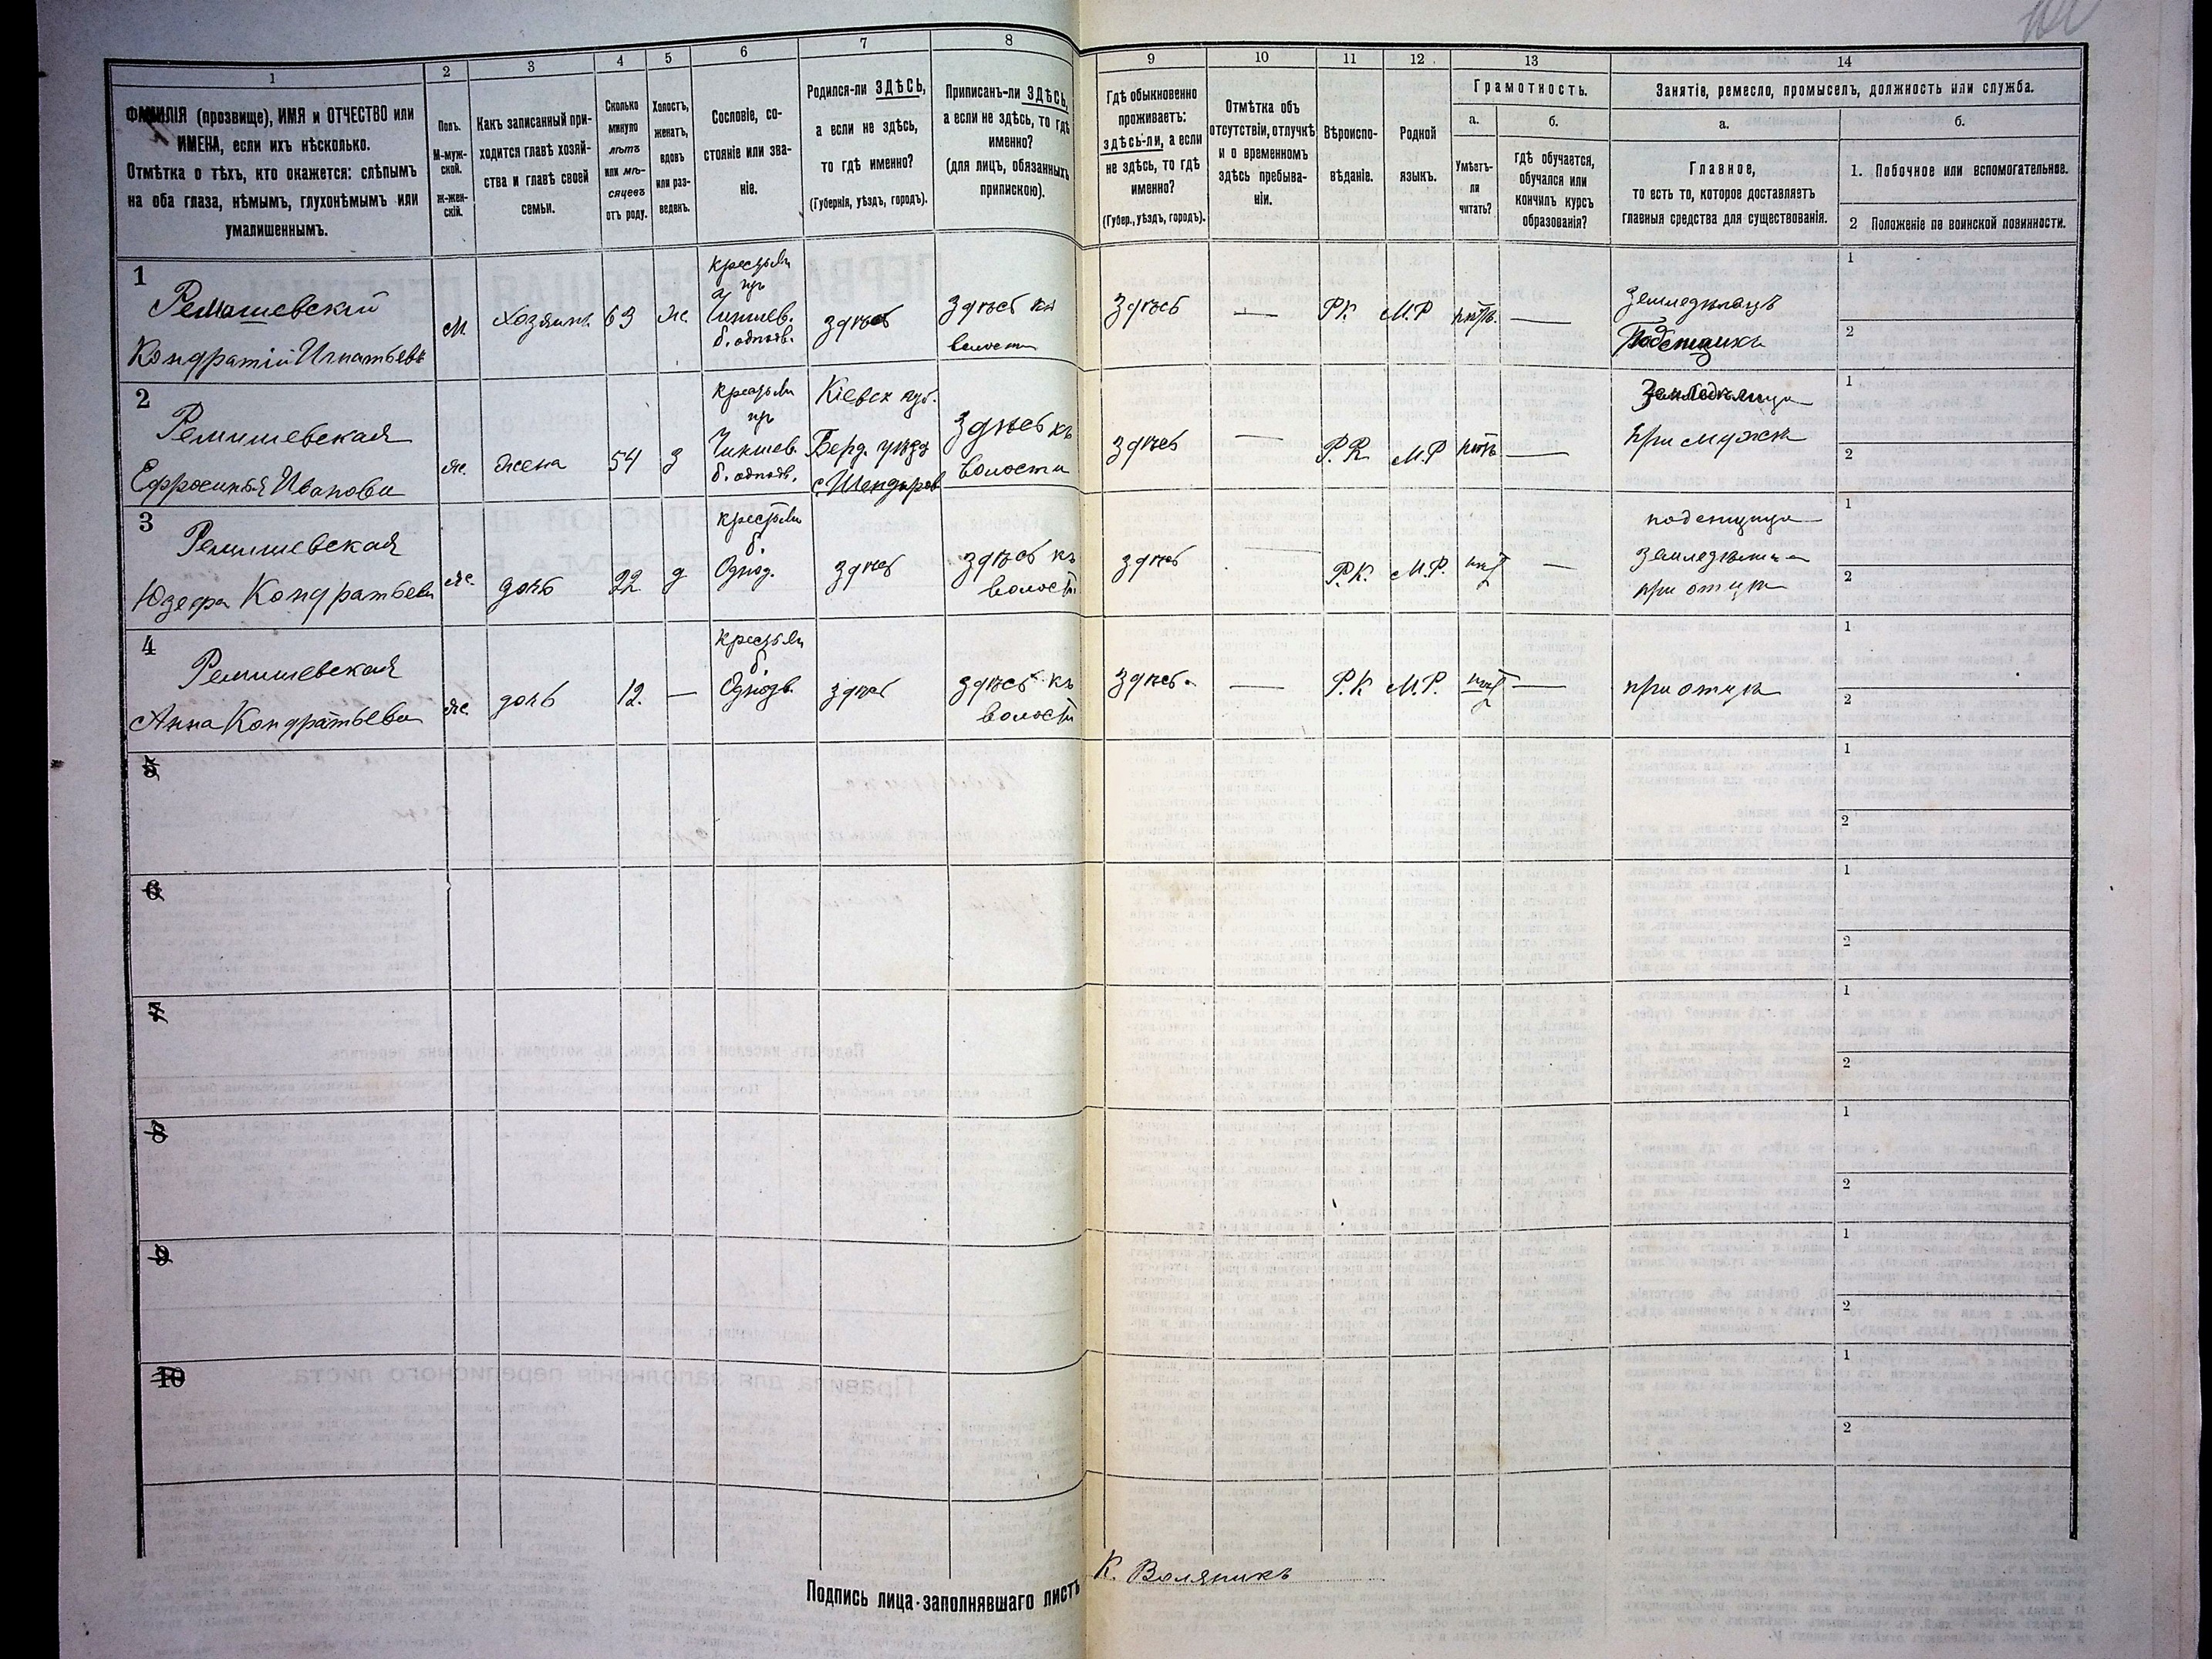 1
ФАМИЛІЯ (прозвище), ИМЯ и ОТЧЕСТВО или
ИМЕНА, если ихъ нѣсколько.
Отмѣтка о тѣхъ, кто окажется: слѣпымъ
на оба глаза, нѣмымъ, глухонѣмымъ или
умалишеннымъ.
2
Полъ.
М-муж-
ской.
Ж-жен-
скій.
3
Какъ записанный при-
ходится главѣ хозяй-
ства и главѣ своей
семьи.
4
Сколько
минуло
лѣтъ
или мѣ-
сяцевъ
отъ роду.
5
Холостъ,
женатъ,
вдовъ
или раз-
веденъ.
6
Сословіе, со-
стояніе или зва-
ніе.
7
Родился-ли ЗДѢСЬ,
а если не здѣсь,
то гдѣ именно?
(Губернія, уѣздъ, городъ).
8
Приписанъ-ли ЗДѢСЬ,
а если не здѣсь, то гдѣ
именно?
(для лицъ, обязанныхъ
припискою).
9
Гдѣ обыкновенно
проживаетъ:
здѣсь-ли, а если
не здѣсь, то гдѣ
именно?
(Губер., уѣздъ, городъ).
10
Отмѣтка объ
отсутствіи, отлучкѣ
и о временномъ
здѣсь пребыва-
ніи.
11
Вѣроиспо-
вѣданіе.
12
Родной
языкъ.
13
Грамотность.
а.
Умѣетъ-
ли
читать?
б.
Гдѣ обучается,
обучался или
кончилъ курсъ
образованія?
14
Занятіе, ремесло, промыселъ, должность или служба.
а.
Главное,
то есть то, которое доставляетъ
главныя средства для существованія.
б.
1. Побочное или вспомогательное.
2 Положеніе по воинской повинности.
1
Ремишевскій
Кондратій Игнатьевъ
м
хозяинъ
63
ж.
Чиншев.
б. однодв.
здѣсь
здѣсь къ
волости
здѣсь
—
РК
М.Р
—
земледѣлецъ
Поденщикъ
1
2
2
Ремишевская
Ефросинья Иванова
ж.
жена
54
з
Чиншев.
б. однодв.
Кіевск губ.
Берд. уѣзд
здѣсь къ
волости
здѣсь
—
Р.К.
М.Р
—
при мужѣ
1
2
3
Ремишевская
Юзефа Кондратьева
ж.
дочь
22
д
б.
Однод.
здѣсь
здѣсь къ
волости
здѣсь
Р.К.
М.Р.
—
поденщица
при отцѣ
1
2
4
Ремишевская
Анна Кондратьева
ж.
дочь
12.
—
б.
Однодв.
здѣсь
здѣсь къ
волости
здѣсь
—
Р.К
М.Р.
—
при отцѣ
1
2
5
1
2
6
1
2
7
1
2
8
1
2
9
1
2
10
1
2
Подпись лица-заполнявшаго листъ
К. Воляникъ